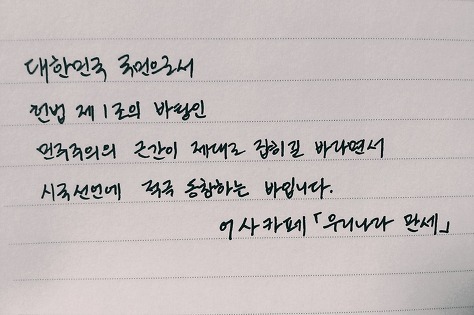 대한민국 국민으로서
헌법 제1조의 바탕인
민주주의의 근간이 제대로 잡히길 바라면서
시국선언에 적극 동참하는 바입니다.
어사카페「우리나라 만세」